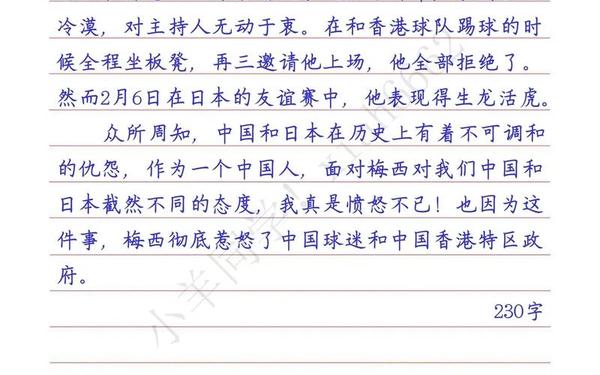 冷漠，对主持人无动于衷。在和香港球队踢球的时
候全程坐板凳，再三邀请他上场，他全部拒绝了。
然而2月6日在日本的友谊赛中，他表现得生龙活虎。
众所周知，中国和日本在历史上有着不可调和
的仇怨，作为一个中国人，面对梅西对我们中国和
日本截然不同的态度，我真是愤怒不已！也因为这
件事，梅西彻底惹怒了中国球迷和中国香港特区政
府。
230字
小羊同学